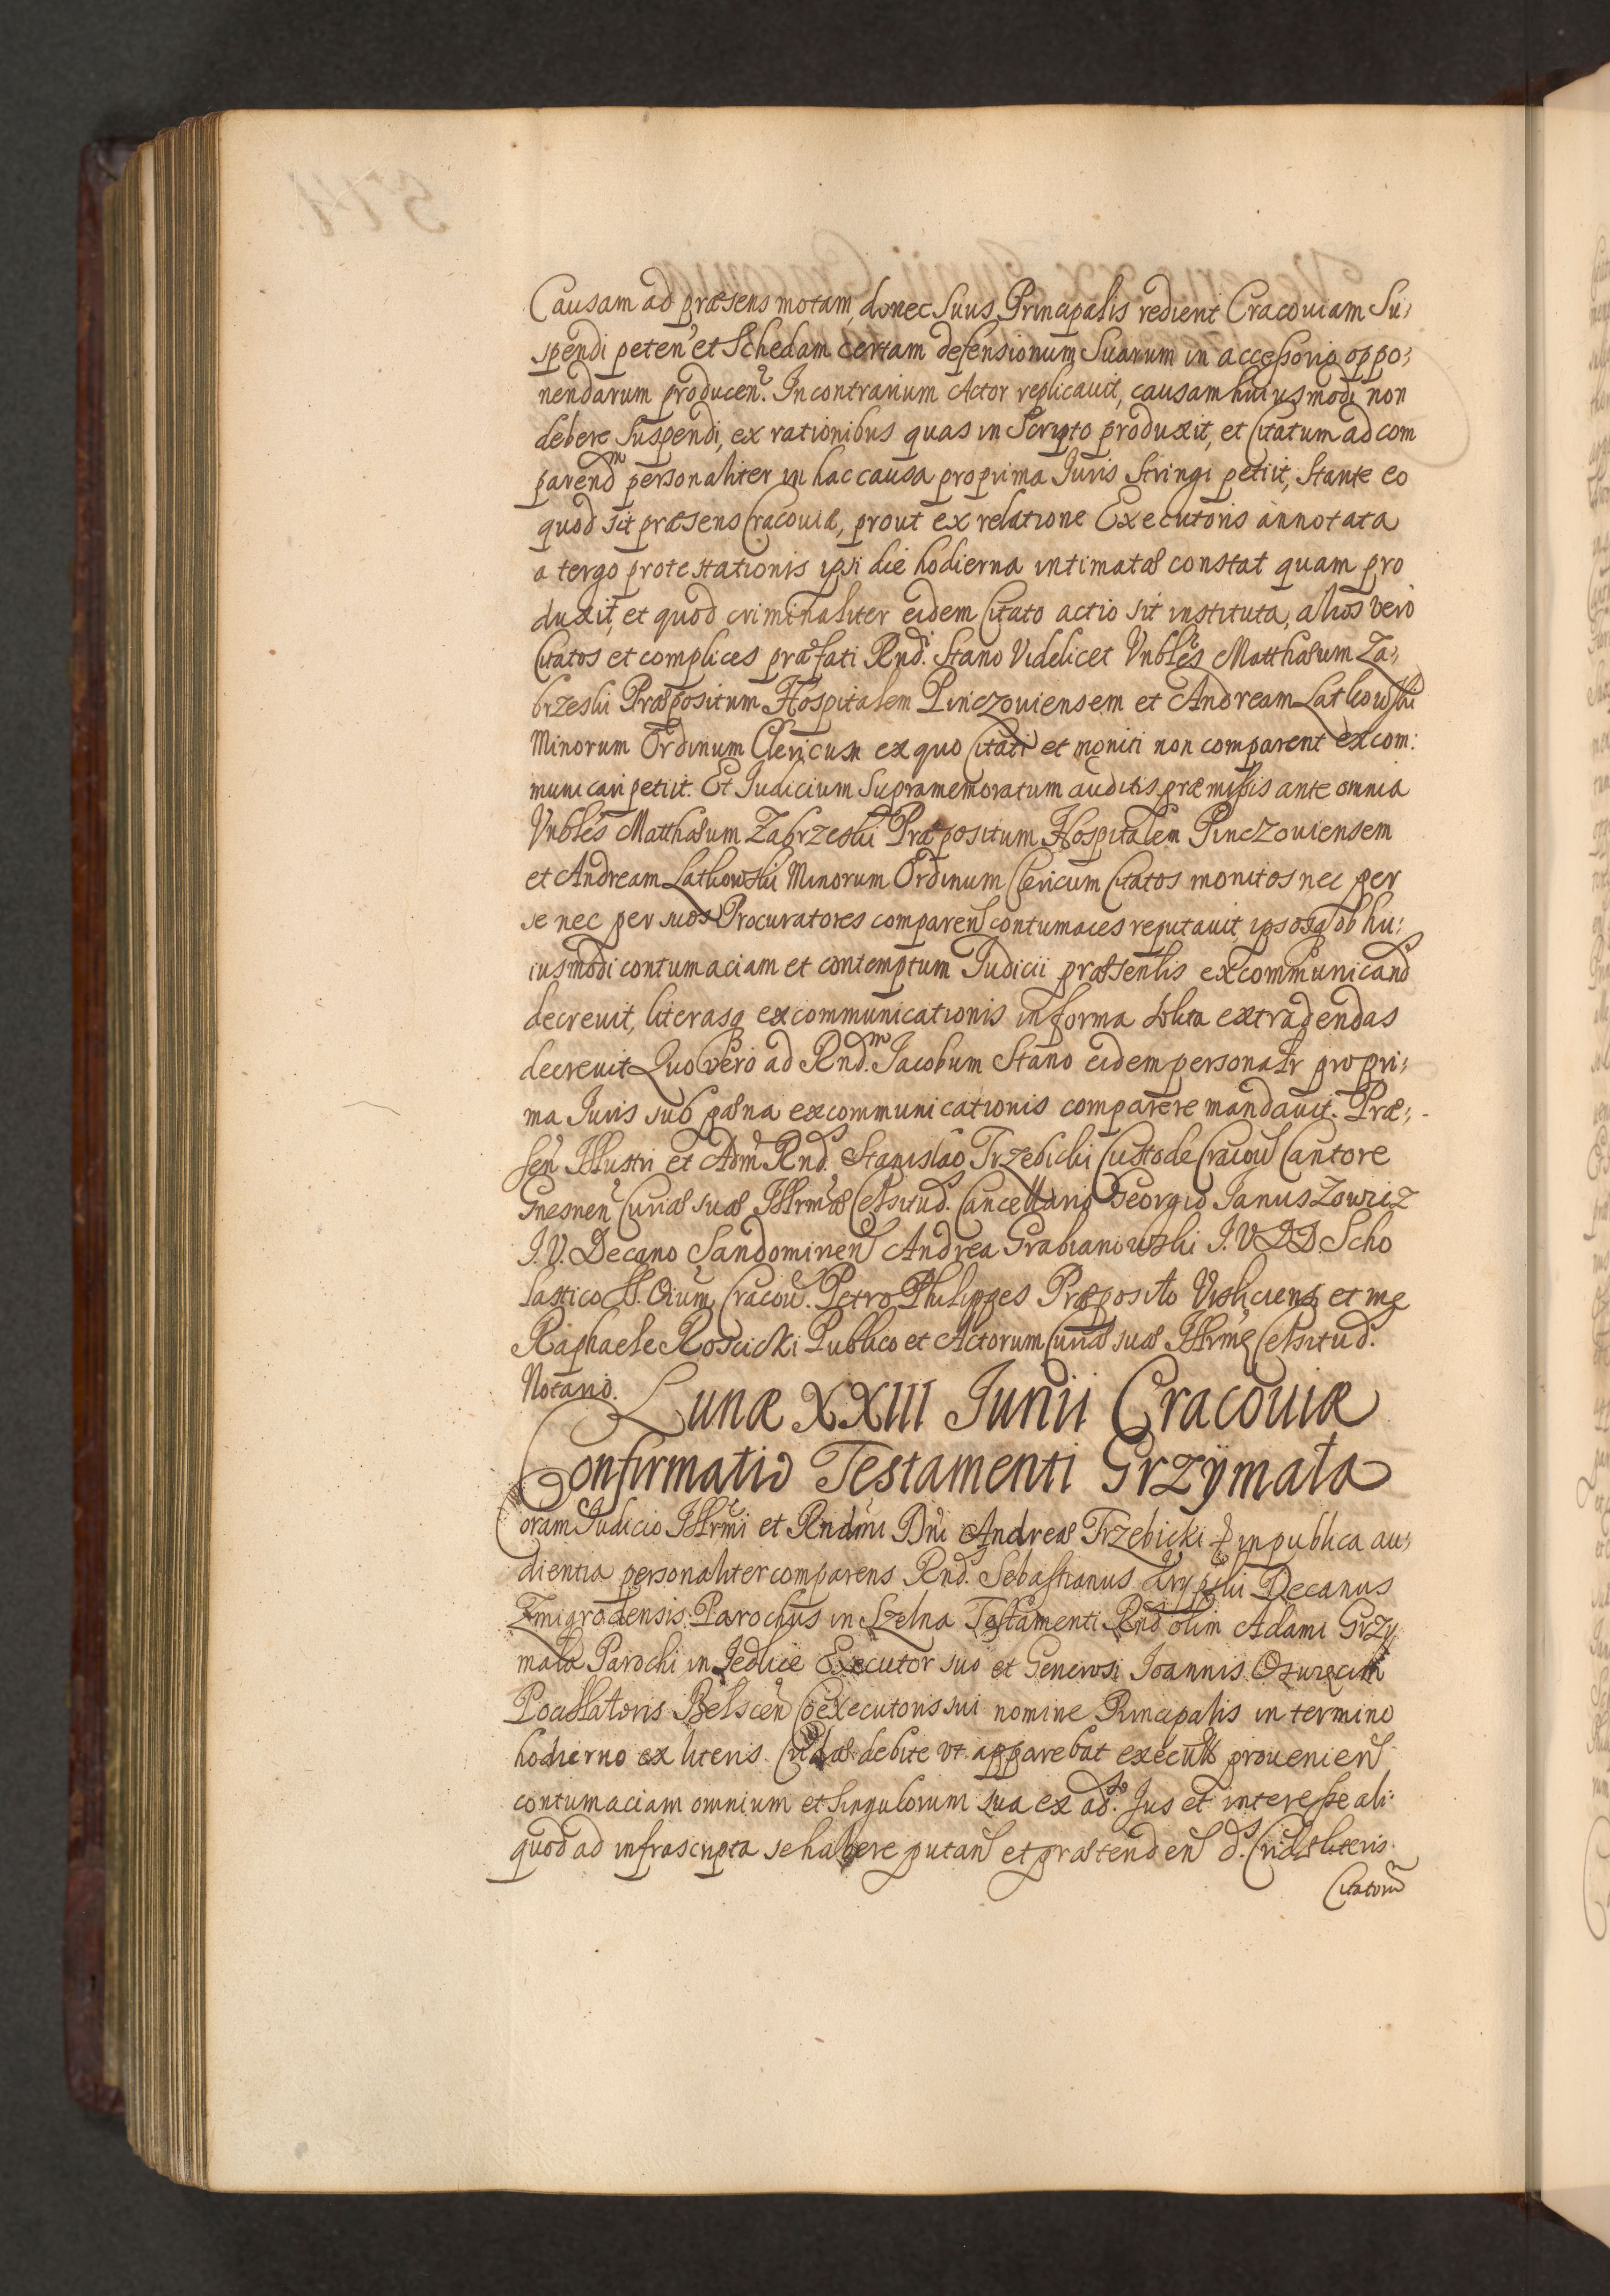 Causam ad præsens motam, donec Suus Principalis redierit Cracouiam Su,
spendi peten et Schedam certam defensionum Suarum in accessorio oppo,
nendarum producen. In contrarium Actor replicauit, causam huiusmodi non
debere Suspendi, ex rationibus quas in Scripto produxit, et Citatum ad com
parend͞m personaliter in hac causa pro prima Juris Stringi petiit, Stante eo
quod sit præsens Cracouiæ, prout ex relatione Executoris annotata
a tergo protestationis ipsi die hodierna intimatæ constat quam pro
duxit, et quod criminaliter eidem Citato actio sit instituta, alios vero
Citatos et complices præfati Rndi. Stano Videlicet Vnbles Matthæum Za,
brzeski Præpositum Hospitalem Pinczouiensem et Andream Latkowski
Minorum Ordinum Clericum ex quo Citati et moniti non comparent excom:
municari petiit. Et Judicium Supramemoratum auditis præmissis ante omnia
Vnbles Matthæum Zabrzeski Præpositum Hospitalem Pinczouiensem
et Andream Latkowski Minorum Ordinum Clericum Citatos monitos nec per
se nec per suos Procuratores comparen contumaces reputauit ipsosq ob hu:
iusmodi contumaciam et contemptum Judicii præsentis excommunicand
decreuit, literasq excommunicationis in forma solita extradendas
decreuit Quo vero ad Rnd.m Jacobum Stano eidem personalr pro pri,
ma Juris sub pæna excommunicationis comparere mandauit. Præ,
sen Illustri et Adm Rnd. Stanislao Trzebicki Custode Cracou Cantore
Gnesnen Curiæ suæ Illrmæ Celsitud. Cancellario Georgio Januszowicz
J.V. Decano Sandomirien Andrea Grabianowski J.V.D.D. Scho
lastico SS. Oium Cracou. Petro Philippes Præposito Visliciens et me
Raphaele Roscicki Publico et Actorum Curiæ suæ Illrmę Celsitud.
Notario.
Lunæ XXIII Junii Cracouiæ
Confirmatio Testamenti Grzÿmała
Coram Judicio Illrmi et Rndmi Dni Andreæ Trzebicki in publica au,
dientia personaliter comparens Rnd. Sebastianus Decanus
Zmigrodensis Parochus in Szelna Testamenti Rnd olim Adami Grzy
mała Parochi in Jedlice Executor suo et Generosi Joannis
Pocillatoris Belscen Coexecutoris sui nomine Principalis in termino
hodierno ex literis debite vt apparebat executis prouenien
contumaciam omnium et Singulorum sua ex ad.o Jus et interesse ali:
quod ad infrascripta se habere putan et prætenden d. literis
Citatorum